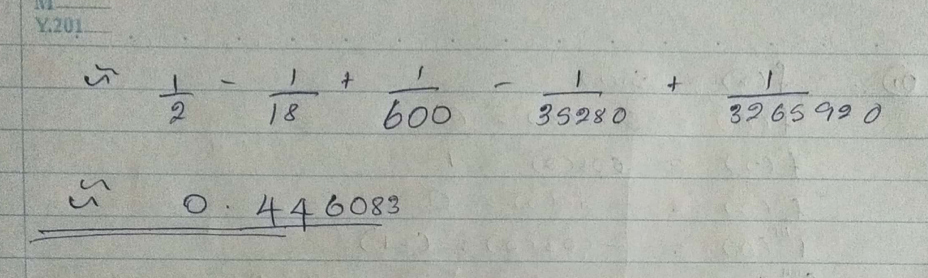 M
Y.201
≈ 1/2 - 1/18 + 1/600 - 1/35280 + 1/3265920
≈ 0.446083